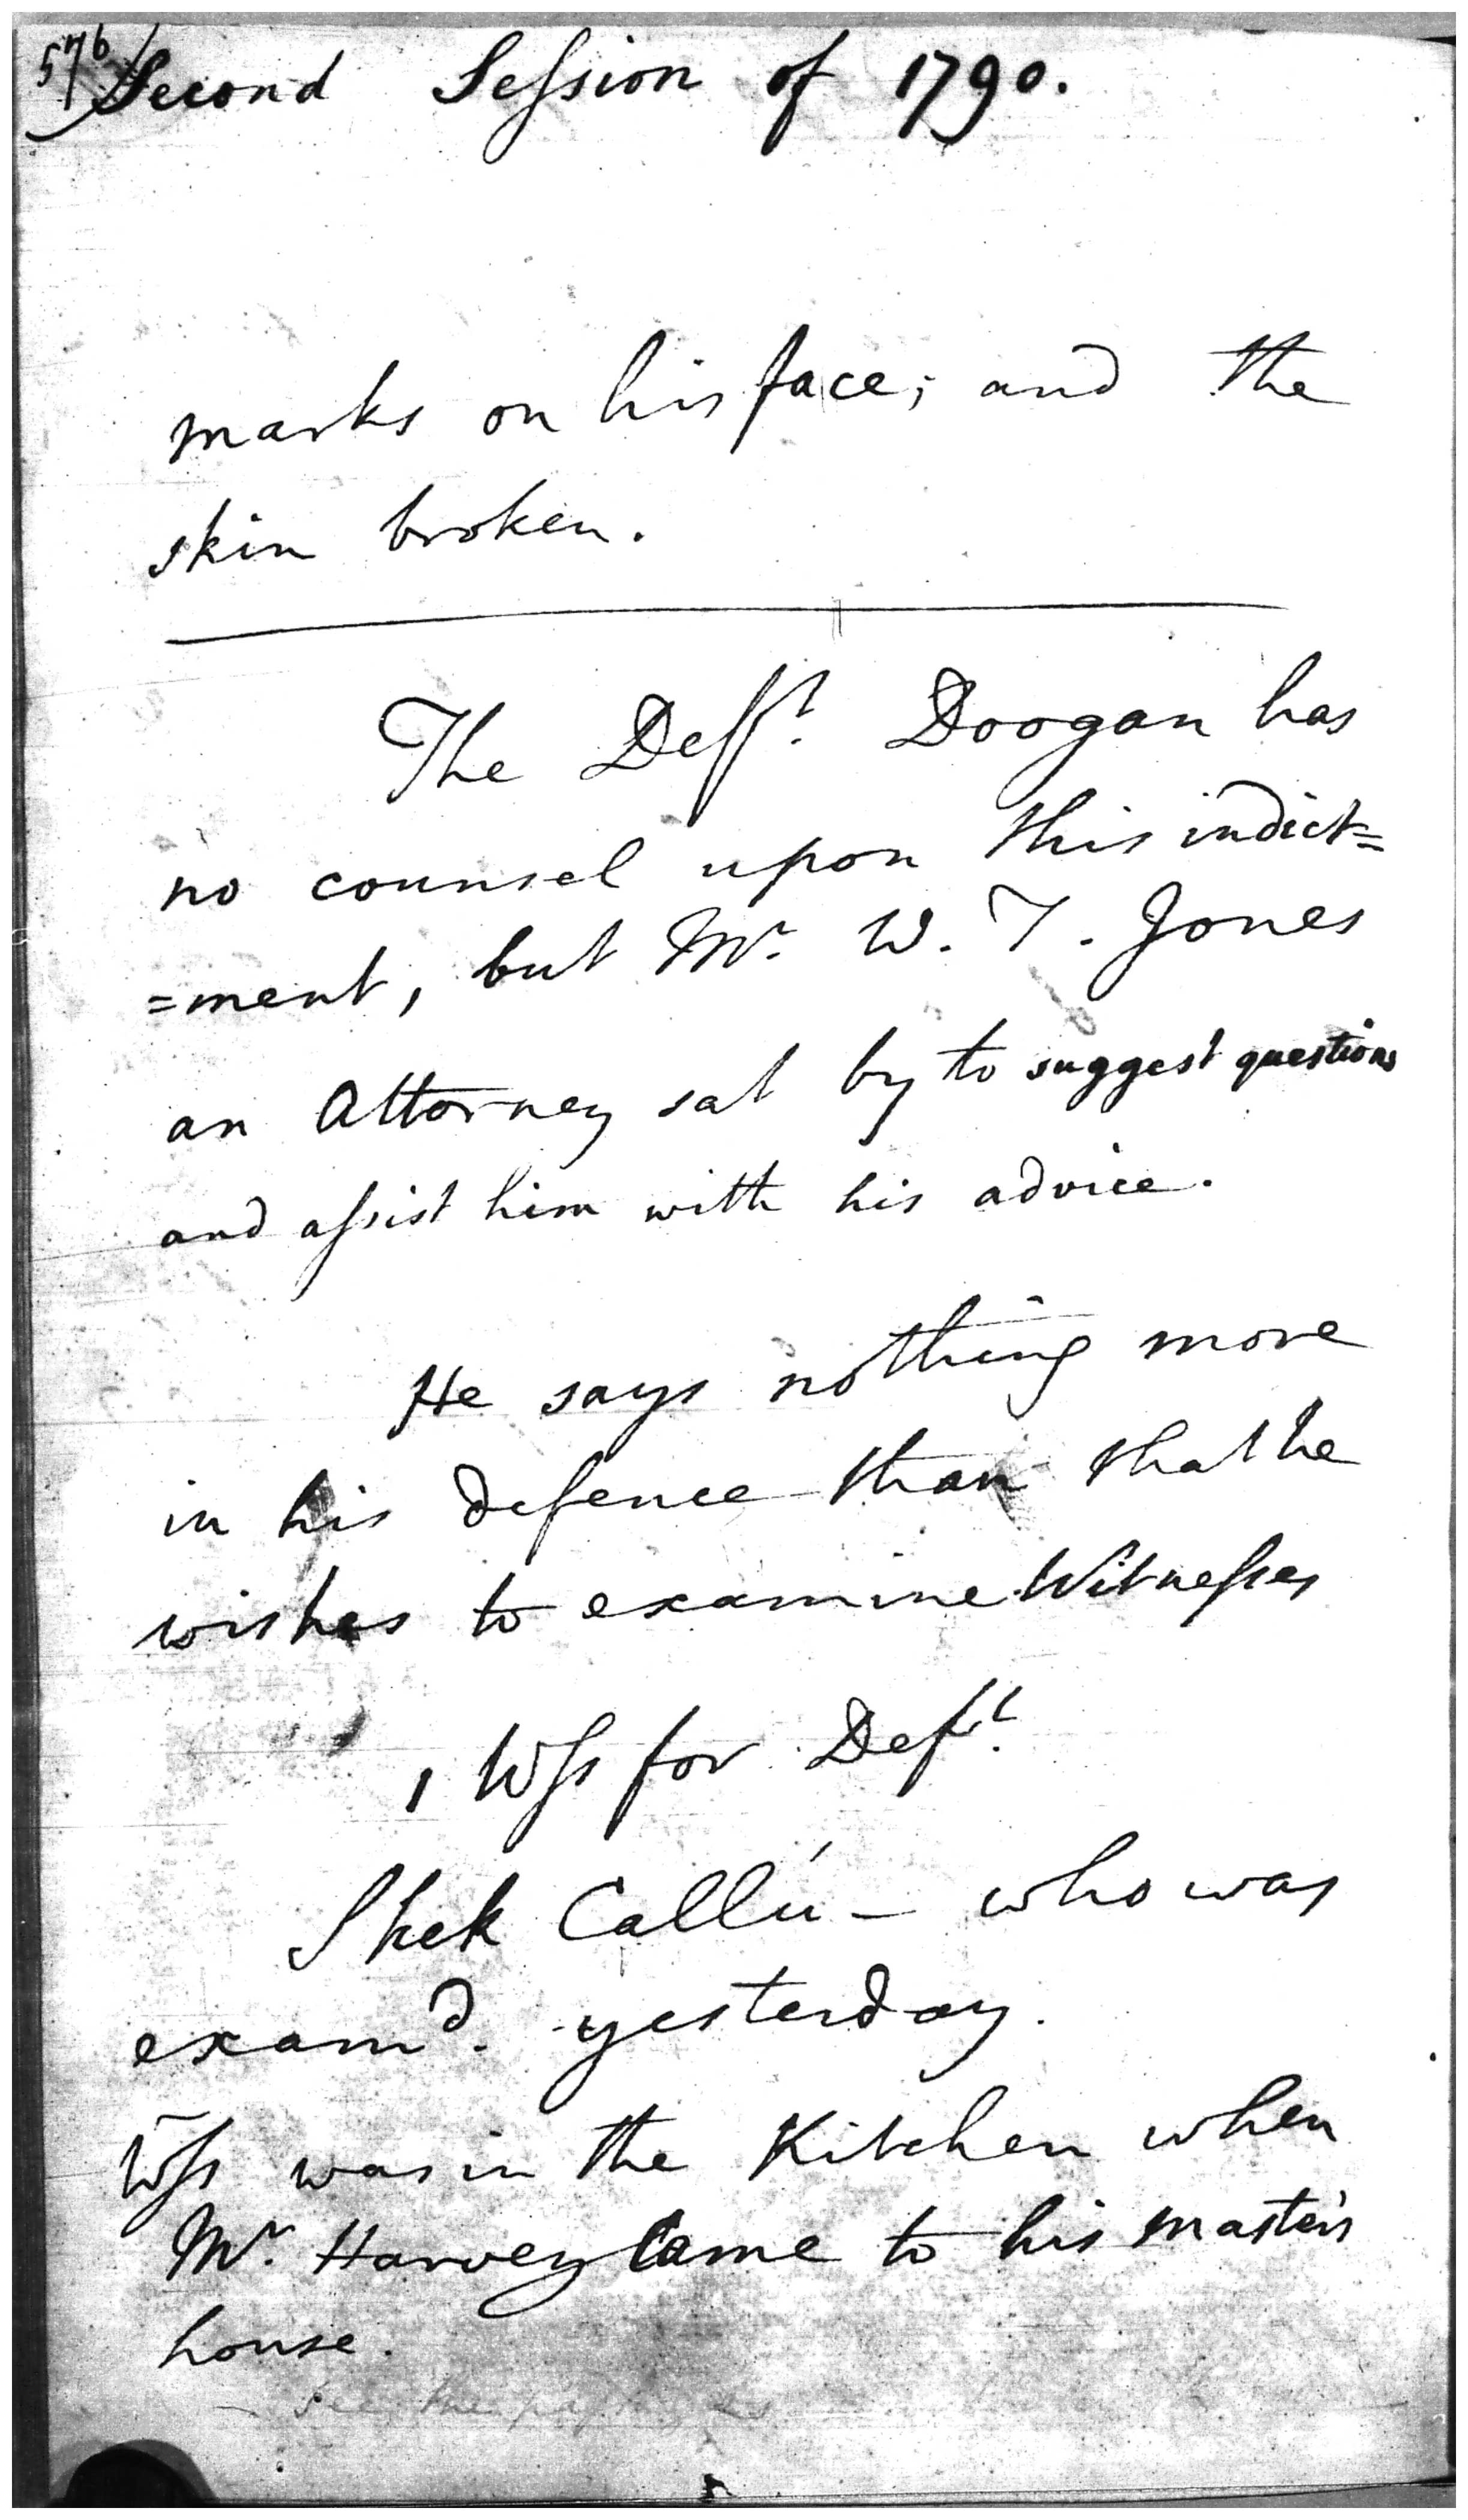 576
Second Session of 1790.
marks on his face; and the
skin broken.
The Deff.t Doogan has
no counsel upon this indict=
=ment, but Mr. W. T. Jones
an Attorney sat by to suggest questions
and assist him with his advice.
He says nothing more
in his defence than that he
wishes to examine Witnesses
1 Wss for Deft.
Shek Callú - who was
examd. yesterday.
Wss was in the Kitchen when
Mr. Harvey came to his master's
house.